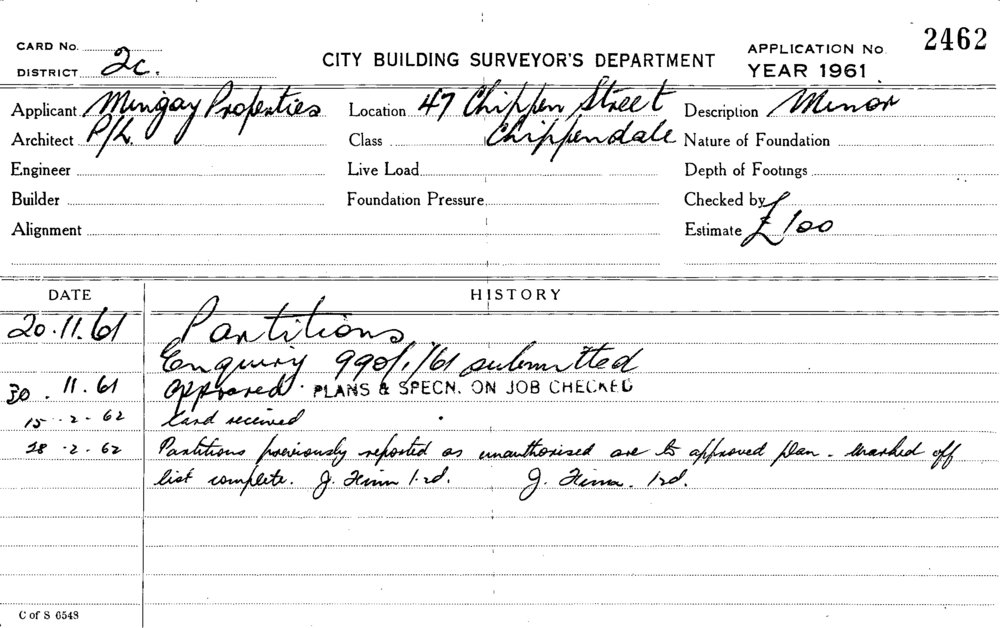 CARD No.
DISTRICT 2c.
CITY BUILDING SURVEYOR'S DEPARTMENT
APPLICATION No 2462
YEAR 1961
Applicant Mingay Properties Location 47 Chippen Street Description Minor
Architect P/L. Class Chippendale Nature of Foundation
Engineer Live Load Depth of Footings
Builder Foundation Pressure Checked by
Alignment Estimate £100
DATE HISTORY
20.11.61 Partitions
Enquiry submitted
30.11.61 Approved. PLANS & SPECN. ON JOB CHECKED
15-2-62 Card received
28-2-62 Partitions previously reported as unauthorised are to approved plan. Marked off
list complete. J. J.
C of S 6548